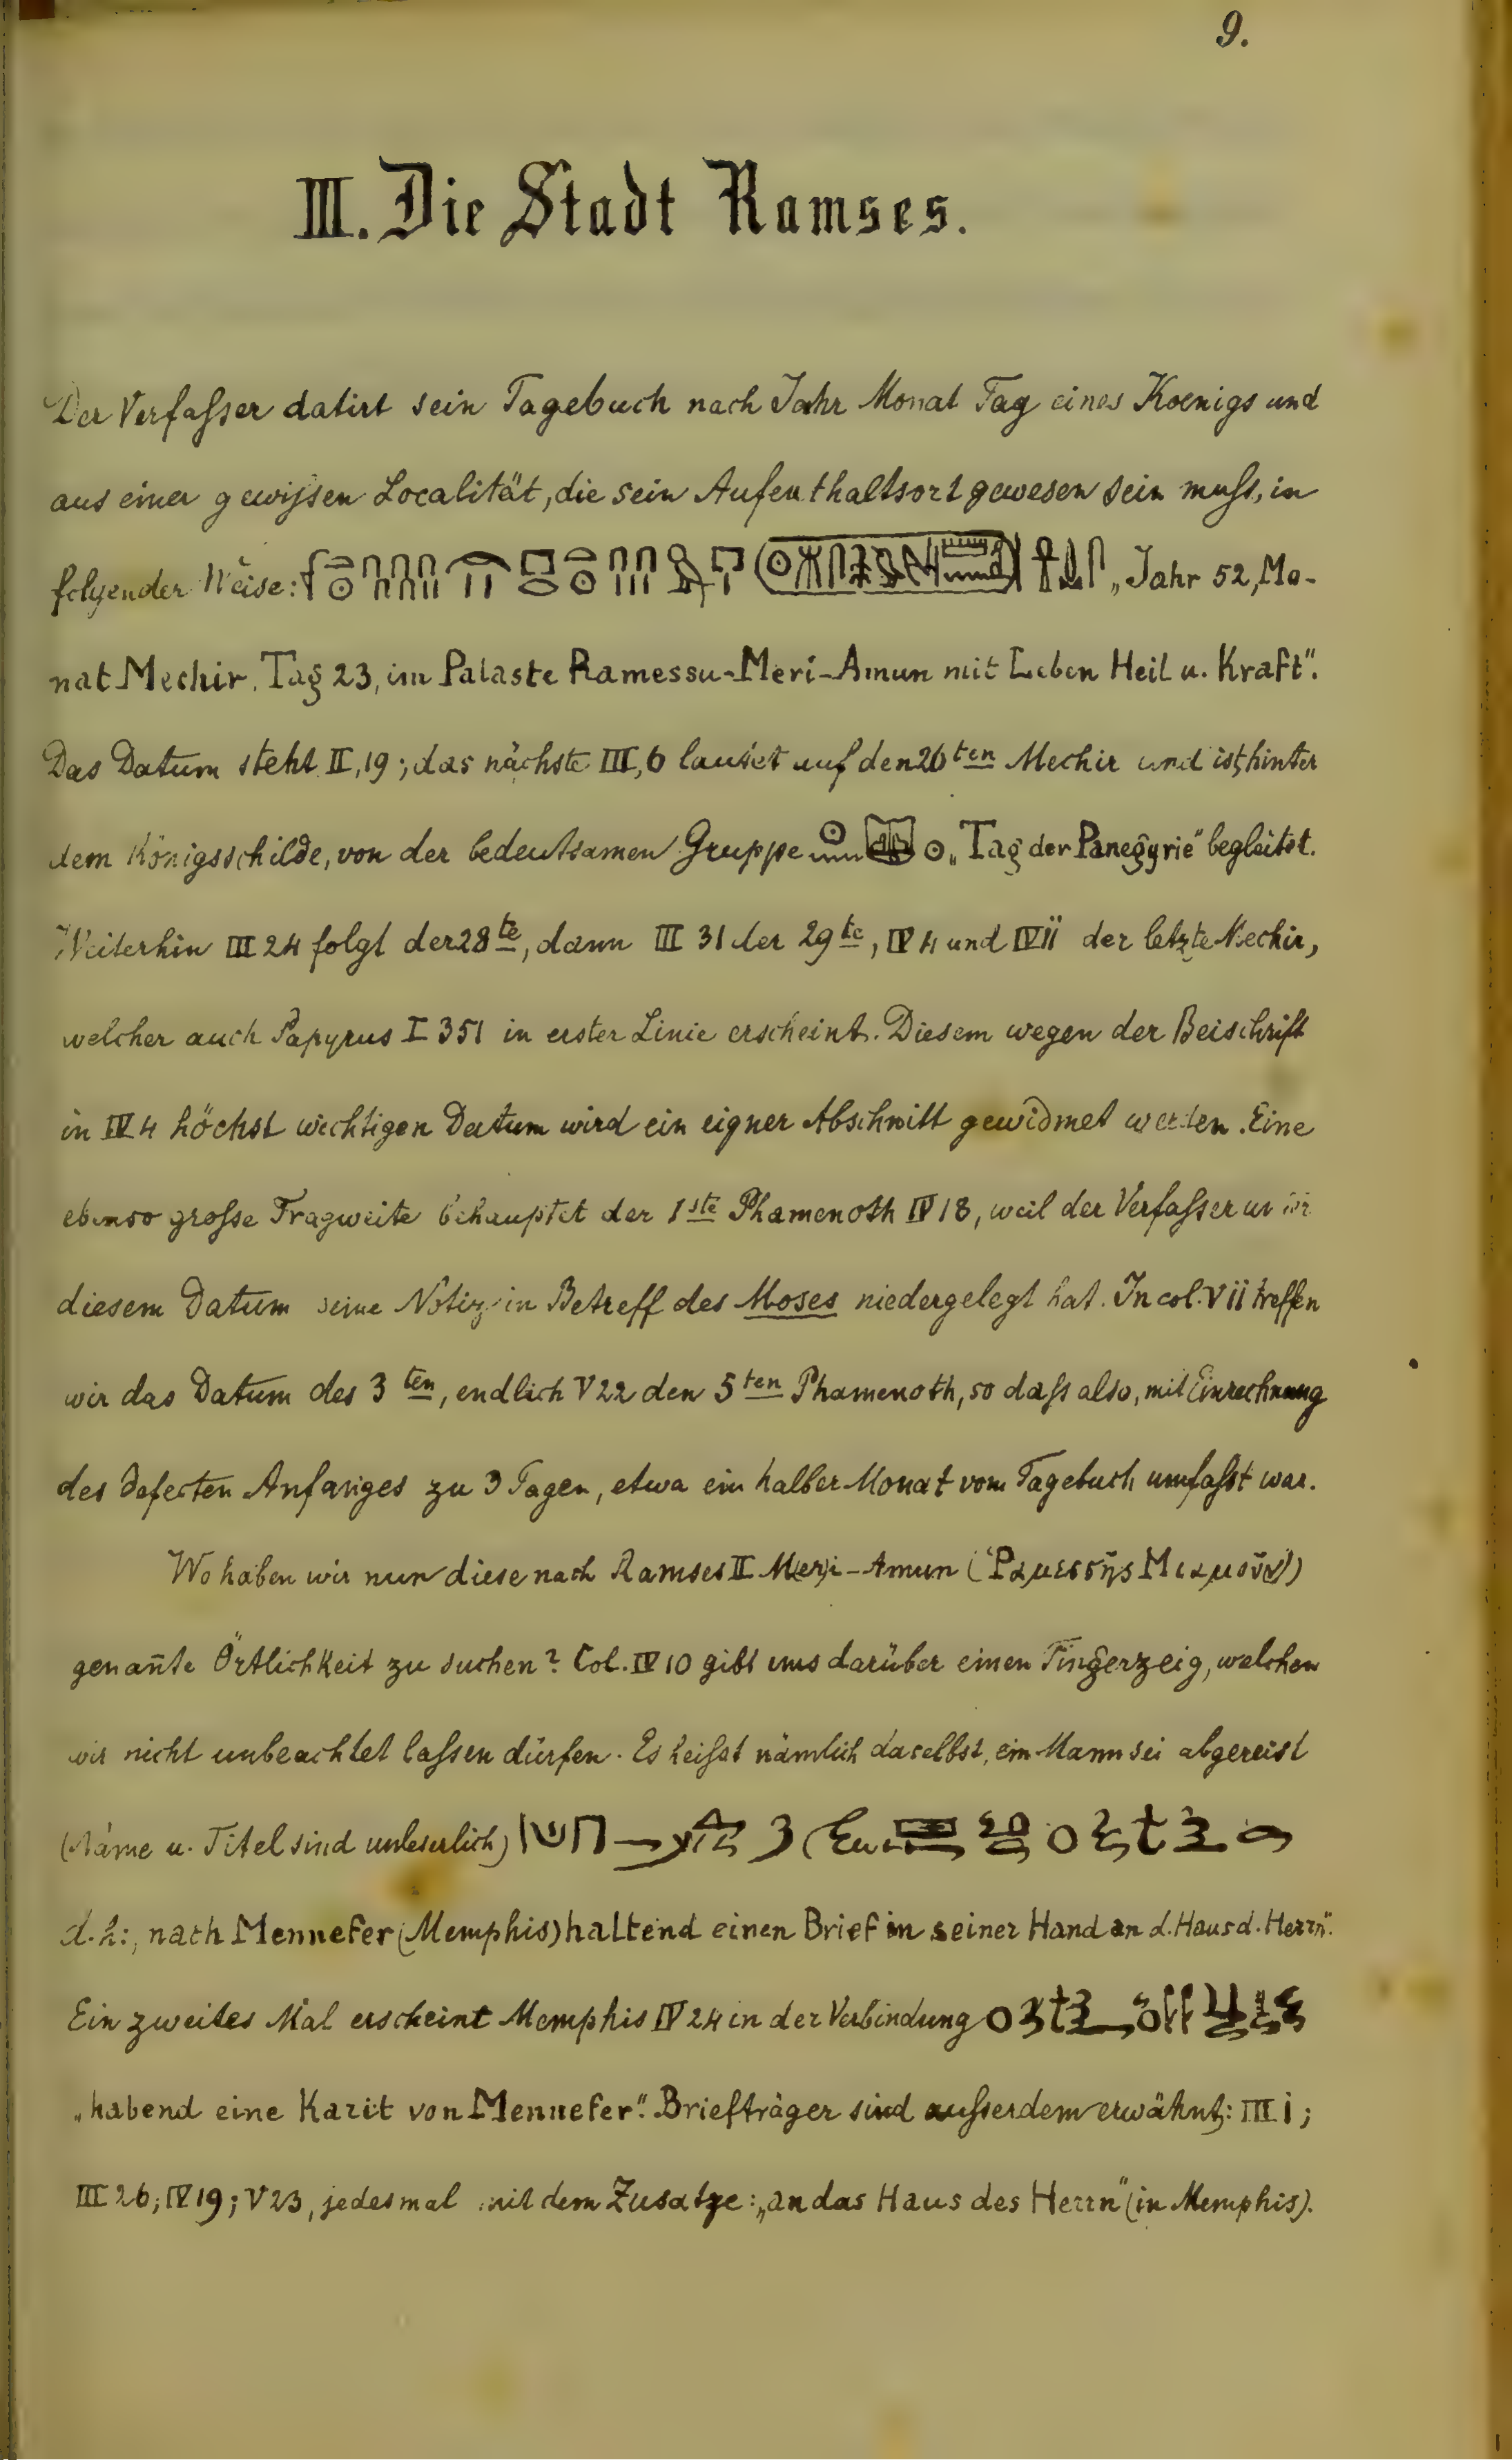 9.
III. Die Stadt Ramses.
Der Verfaſser datirt sein Tagebuch nach Jahr Monat Tag eines Koenigs und
aus einer gewiſsen Localität, die sein Aufenthaltsort gewesen sein muſs, in
folgender Weise: „Jahr 52, Mo-
nat Mechir, Tag 23, im Palaste Ramessu-Meri-Amun mit Leben Heil u. Kraft“.
Das Datum steht II, 19; das nächste III, 6 lautet auf den 26ten Mechir und ist, hinter
dem Königsschilde, von der bedeutsamen Gruppe „Tag der Panegyrie“ begleitet.
Weiterhin III 24 folgt der 28te, dann III 31 der 29te, IV 4 und IV ii der letzte Mechir,
welcher auch Papyrus I 351 in erster Linie erscheint. Diesem wegen der Beischrift
in IV 4 höchst wichtigen Datum wird ein eigner Abschnitt gewidmet werden. Eine
ebenso groſse Tragweite behauptet der 1ste Phamenoth IV 18, weil der Verfaſser unter
diesem Datum seine Notiz in Betreff des Moses niedergelegt hat. In col. V ii treffen
wir das Datum des 3ten, endlich V 22 den 5ten Phamenoth, so daſs also, mit Einrechnung
des defecten Anfanges zu 3 Tagen, etwa ein halber Monat vom Tagebuch umfaſst war.
Wo haben wir nun diese nach Ramses II Mer)i-Amun (Ῥαμεσσῆς Μιαμοῦν)
genañte Örtlichkeit zu suchen? Col. IV 10 gibt uns darüber einen Fingerzeig, welchen
wir nicht unbeachtet laſsen dürfen. Es heiſst nämlich daselbst, ein Mann sei abgereist
(Name u. Titel sind unleserlich)
d. h: „nach Mennefer (Memphis) haltend einen Brief in seiner Hand an d. Haus d. Herrn“.
Ein zweites Mal erscheint Memphis IV 24 in der Verbindung
„habend eine Karit von Mennefer“. Briefträger sind auſserdem erwähnt: III i;
III 26; IV 19; V 23, jedesmal mit dem Zusatze: „an das Haus des Herrn“ (in Memphis).